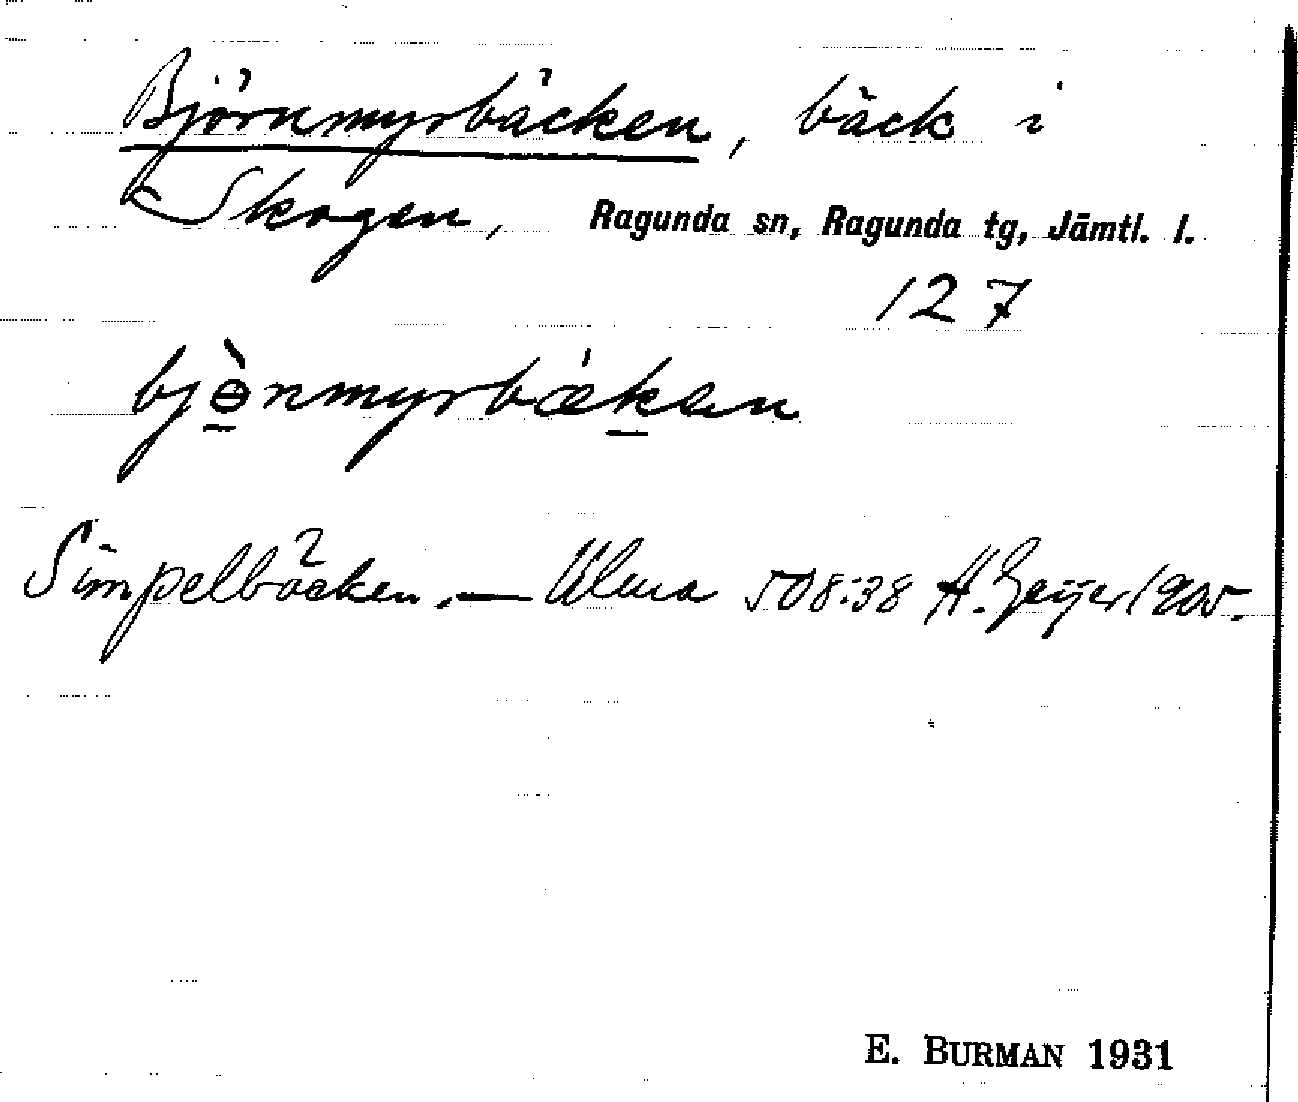 Björnmyrbäcken, bäck i
Skogen, Ragunda sn, Ragunda tg, Jämtl. l.
127
bjɵ̀nmyrbækan
Simpelbäcken. — Ulma 508:38 H. Geijer 1905.
E. BURMAN 1931